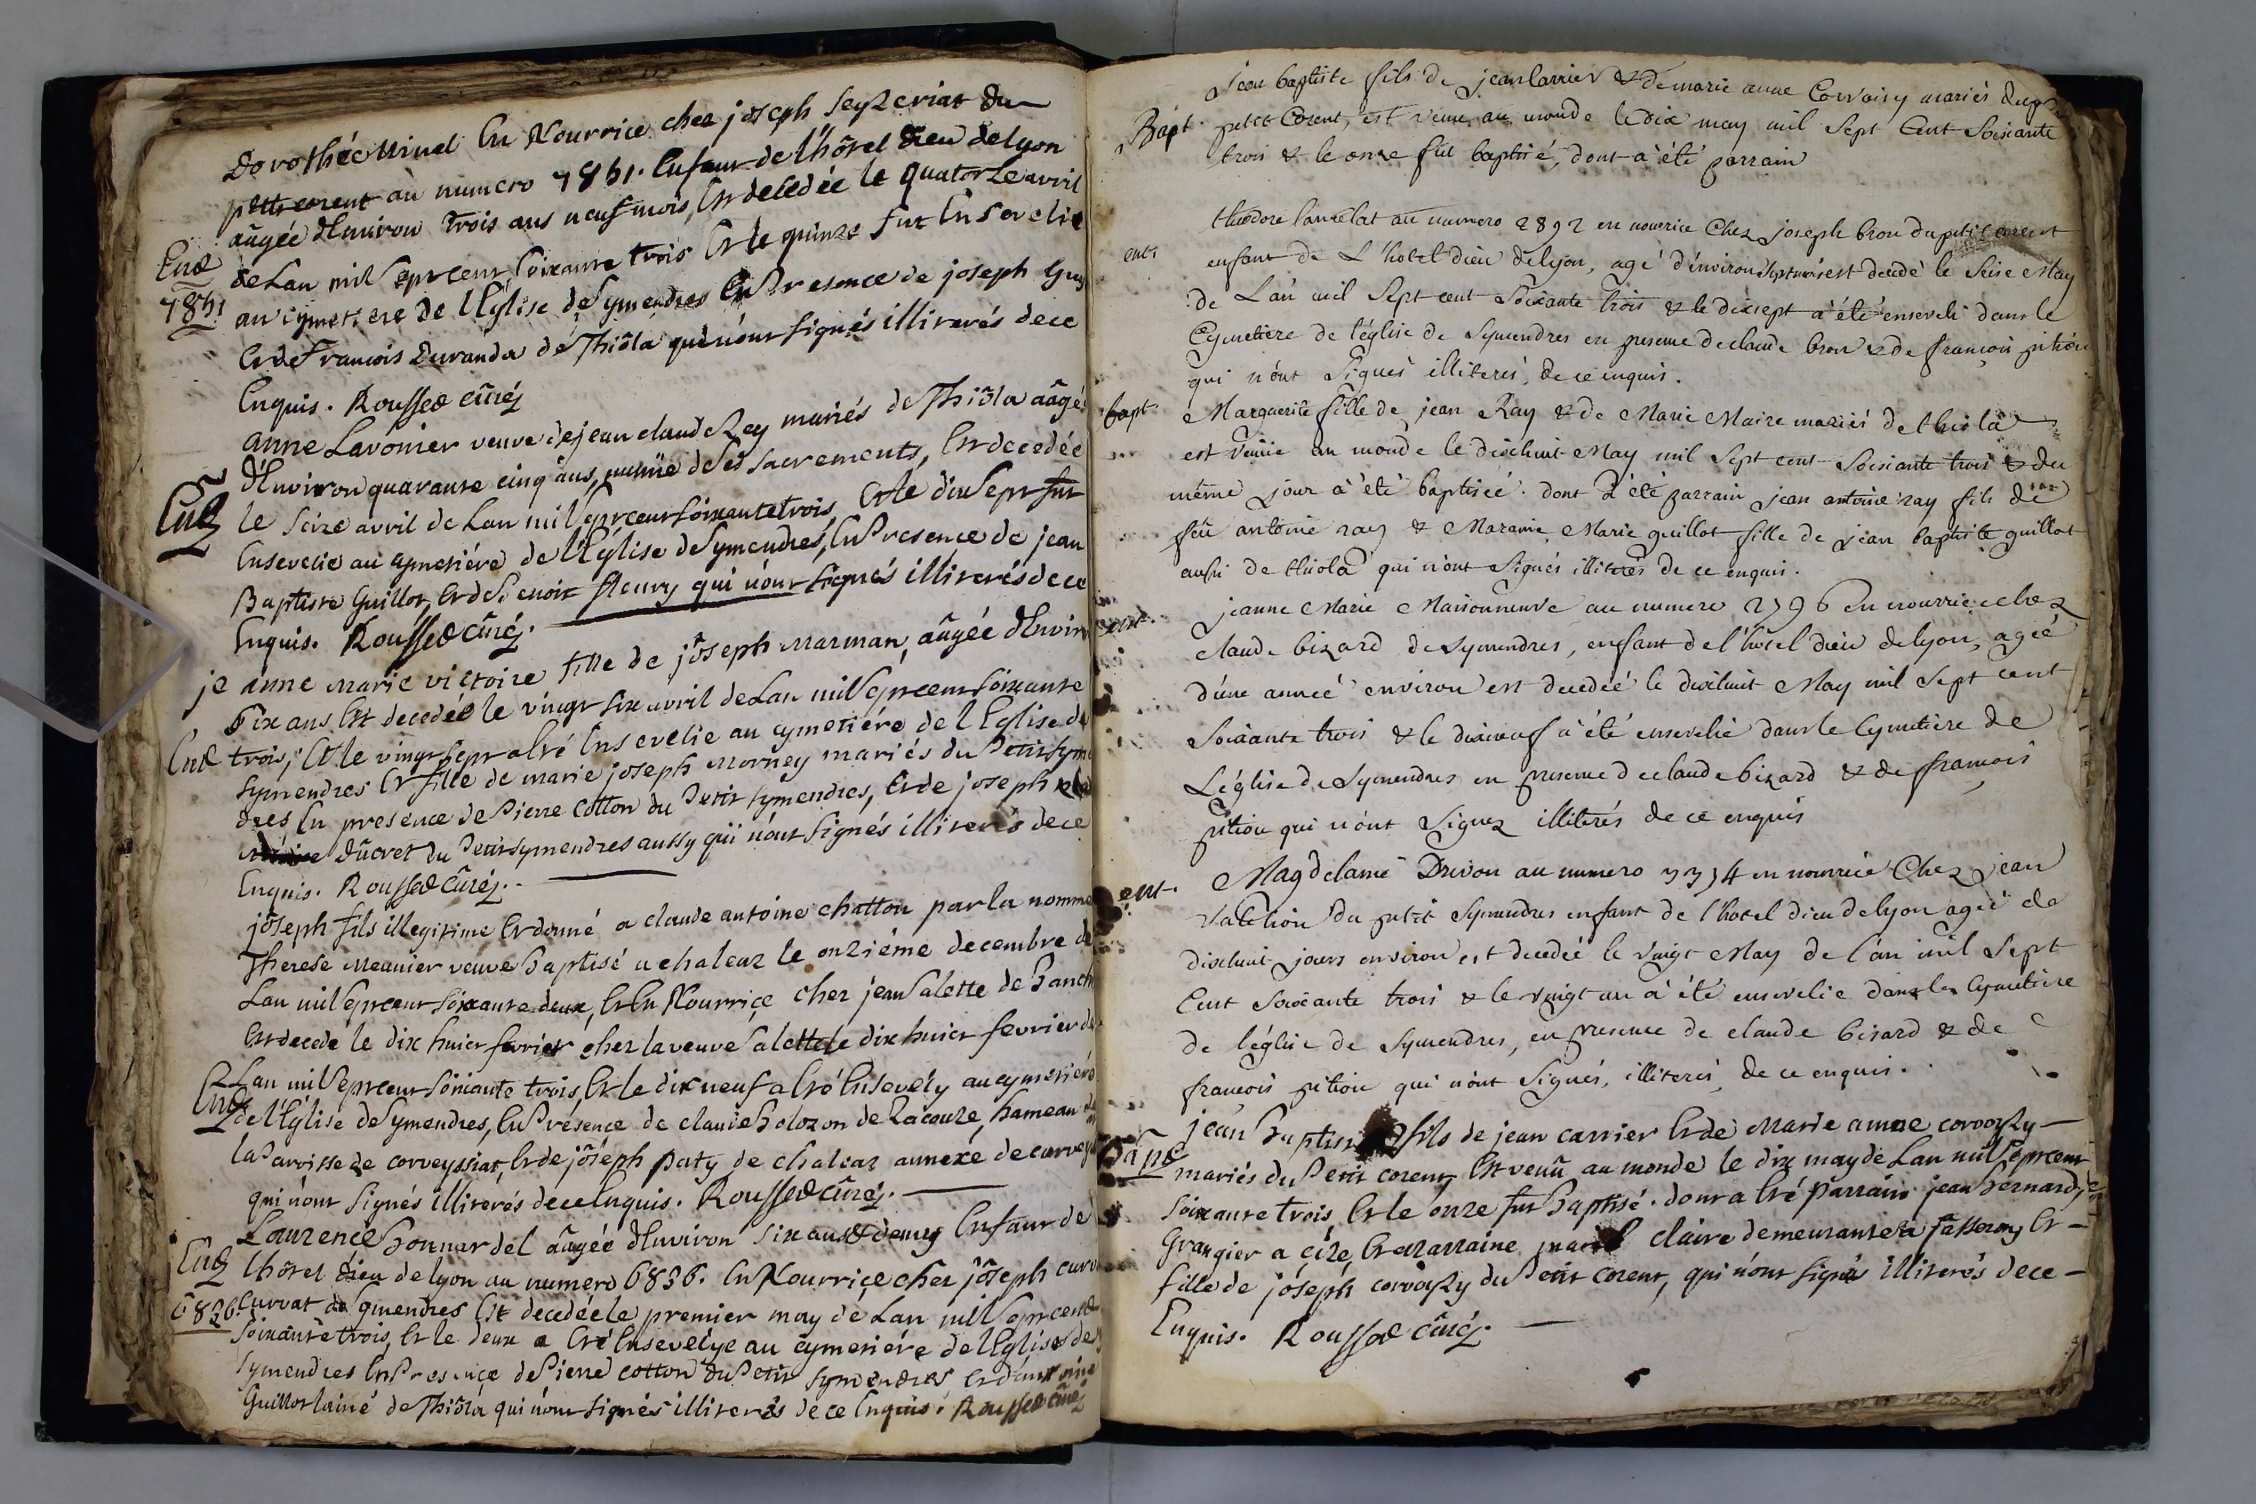 Dorothée Minel En Nourrice chez joseph Seyzeriat du
petit corent au numero 7851. Enfant de l'hôtel Dieu de lyon
aûgée d'Environ trois ans neuf mois, Est decedée le quatorze avril
Ent
de Lan mil sept cent soixante trois Et le quinze fut Ensevelie
7851
au cymetiere de l'Eglise de Symendres En Presence de joseph Guy
Et de Francois Durandà de Thiôla qui n'ont signés illiterés de ce
Enquis. Roussed cûré
anne Lavonier veuve de jean claude Rey mariés de Thiôla aâgée
d'Environ quarante cinq ans, munïe de ses sacrements, Est decedée
Ent
le seize avril de Lan mil sept cent soixante trois, Et le dix sept fut
Ensevelie au cymetiére de l'Eglise de Symendres, En Presence de jean
Baptiste Guillot, Et de Benoit fleury qui n'ont signés illiterés de ce
Enquis. Roussed cûré.
jeanne Marie victoire fille de jôseph Marman, aûgée d'Environ
six ans Est decedée le vingt six avril de Lan mil sept cent soixante
Ent
trois, Et le vingt sept a Eté Ensevelie au cymetiére de l'Eglise de
Symendres Et fille de marie joseph Morney mariés du Petit Symen
dres En presence de Pierre Cotton du Petit Symendres, Et de joseph
Dûcret du Petit Symendres aussy qui n'ont signés illiterés de ce
Enquis. Roussed Cûré.
jôseph fils illegitime Et donné a claude antoine chatton par la nommée
Therese Meunier veuve Baptisé a chaleaz le onziéme decembre de
Lan mil sept cent soixante deux, Et En Nourrice chez jean Salette de Banch
Est decedé le dix huict fevrier chez la veuve Salette le dix huict fevrier de
Lan mil sept cent soixante trois, Et le dix neuf a Eté Ensevely au cymetiére
Ent
de l'Eglise de Symendres, En Présence de claude Bolozon de Racouze, hameau de
la Parroisse de corveyssiat, Et de jôséph paty de chaleaz annexe de corveys
qui n'ont signés illiterés de ce Enquis. Roussed cûré.
Laurence Bonnardel aûgée d'Environ six ans & demy Enfant de
Ent
l'hôtel Dieu de lyon au numero 6836. En Nourriçe chez jôseph curv
6836
curvat de Symendres Est decedée le premier may de Lan mil sept cent
soixante trois, Et le deux a Eté Ensevelye au cymetiére de l'Eglise de
Symendres En Presence de Pierre cotton du Petit Symendres Et d'antoine
Guillot lainé de Thiôla qui n'ont signés illiterés de ce Enquis. Roussed Cûré
Jean baptiste fils de jean carrier & de marie anne Corvaisy mariés du
Bapt.
petit Corent, est venu au monde le dix may mil Sept Cent Soixante
trois & le onze fut baptisé, dont a été parrain
théodore lancelat au numero 2892 en nourrice Chez joseph bron du petit corent
ent.
enfant de L'hotel dieu de lyon, agé d'environ Sept mois est decedé le Seise May
de L'an mil Sept cent Soixante trois & le dixsept a été enseveli dans le
Cymetiere de l'église de Symendres en presence de claude bron & de françois pition
qui n'ont Signés illiterés, de ce enquis.
bapt.
Marguerite fille de jean Ray & de Marie Maire mariés de thiola
est venüe au monde le dixhuit May mil Sept cent Soixiante trois & du
même jour a été baptisée. dont a été parrain jean antoine ray fils de
feû antoine ray & Maraine Marie guillot fille de jean baptiste guillot
aussi de thiola qui n'ont Signés illiterés de ce enquis.
ent.
jeanne Marie Maisonneuve au numero 2796 En nourrice chez
claude bizard de Symendres, enfant de l'hôtel dieu de lyon, agée
d'une année environ est decedée le dixhuit May mil Sept cent
Soixante trois & le dixneuf a été ensevelie dans le Cymetiere de
L'église de Symendres en presence de claude bizard & de françois
pition qui n'ont Signez illiterés de ce enquis
ent.
Magdelaine Drivon au numero 3374 en nourrice Chez jean
Valetion du petit Symendres enfant de l'hotel dieu de lyon agée de
dixhuit jours environ est decedée le vingt May de l'an mil Sept
Cent Soixante trois & le vingt un a été ensevelie dans le Cymetiere
de l'église de Symendres, en presence de claude bisard & de
francois pition qui n'ont Signés, illiterés, de ce enquis.
jean Baptiste fils de jean carrier Et de Marie anne corvoisy
Bapt
mariés du Petit corent Est venû au monde le dix may de Lan mil sept cent
soixante trois, Et le onze fut Baptisé. dont a Eté parrain jean Bernard
Grangier a cize, Et Marraine marie claire demeurante a Et
fille de jôséph corvoisy du Petit corent, qui n'ont signés illiterés de ce
Enquis. Roussed cûré.